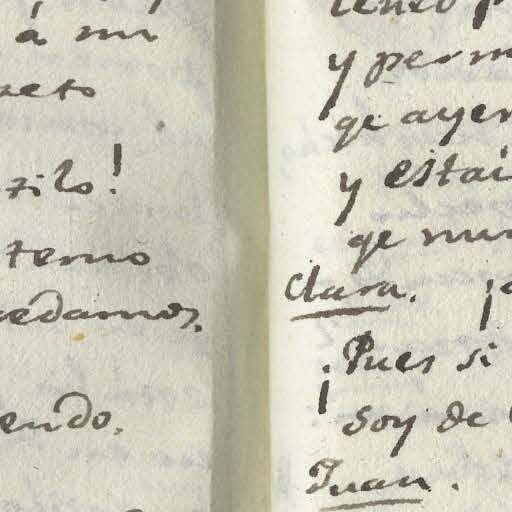 á mi
reto
zilo!
terno
edamos.
endo.
y perm
qe ayer
y estai
qe nun
Clara. ¡
¡Pues si
soy de
Juan.